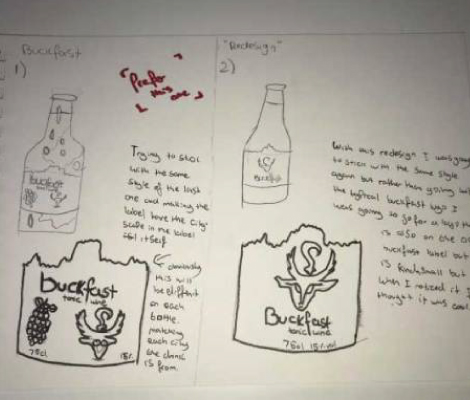 Buckfast
1)
"Prefer
this
one"
Trying to stick
with the same
style of the last
one and making the
label have the City
scape in the label
itself.
obviously
this will
be different
on each
bottle.
matching
each city
the drink
is from.
buckfast
buckfast
tonic wine
75cl
15%
"Redesign"
2)
With this redesign I was going
to stick with the same style
again but rather than going with
the typical buckfast logo I
was going to go for a logo that
is also on the
buckfast label but
is really small but
when I noticed it I
thought it was cool.
Buckfast
Buckfast
tonic wine
75cl 15% vol